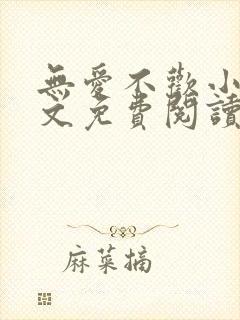 無愛不歡小
文免費閱讀
麻菜摘